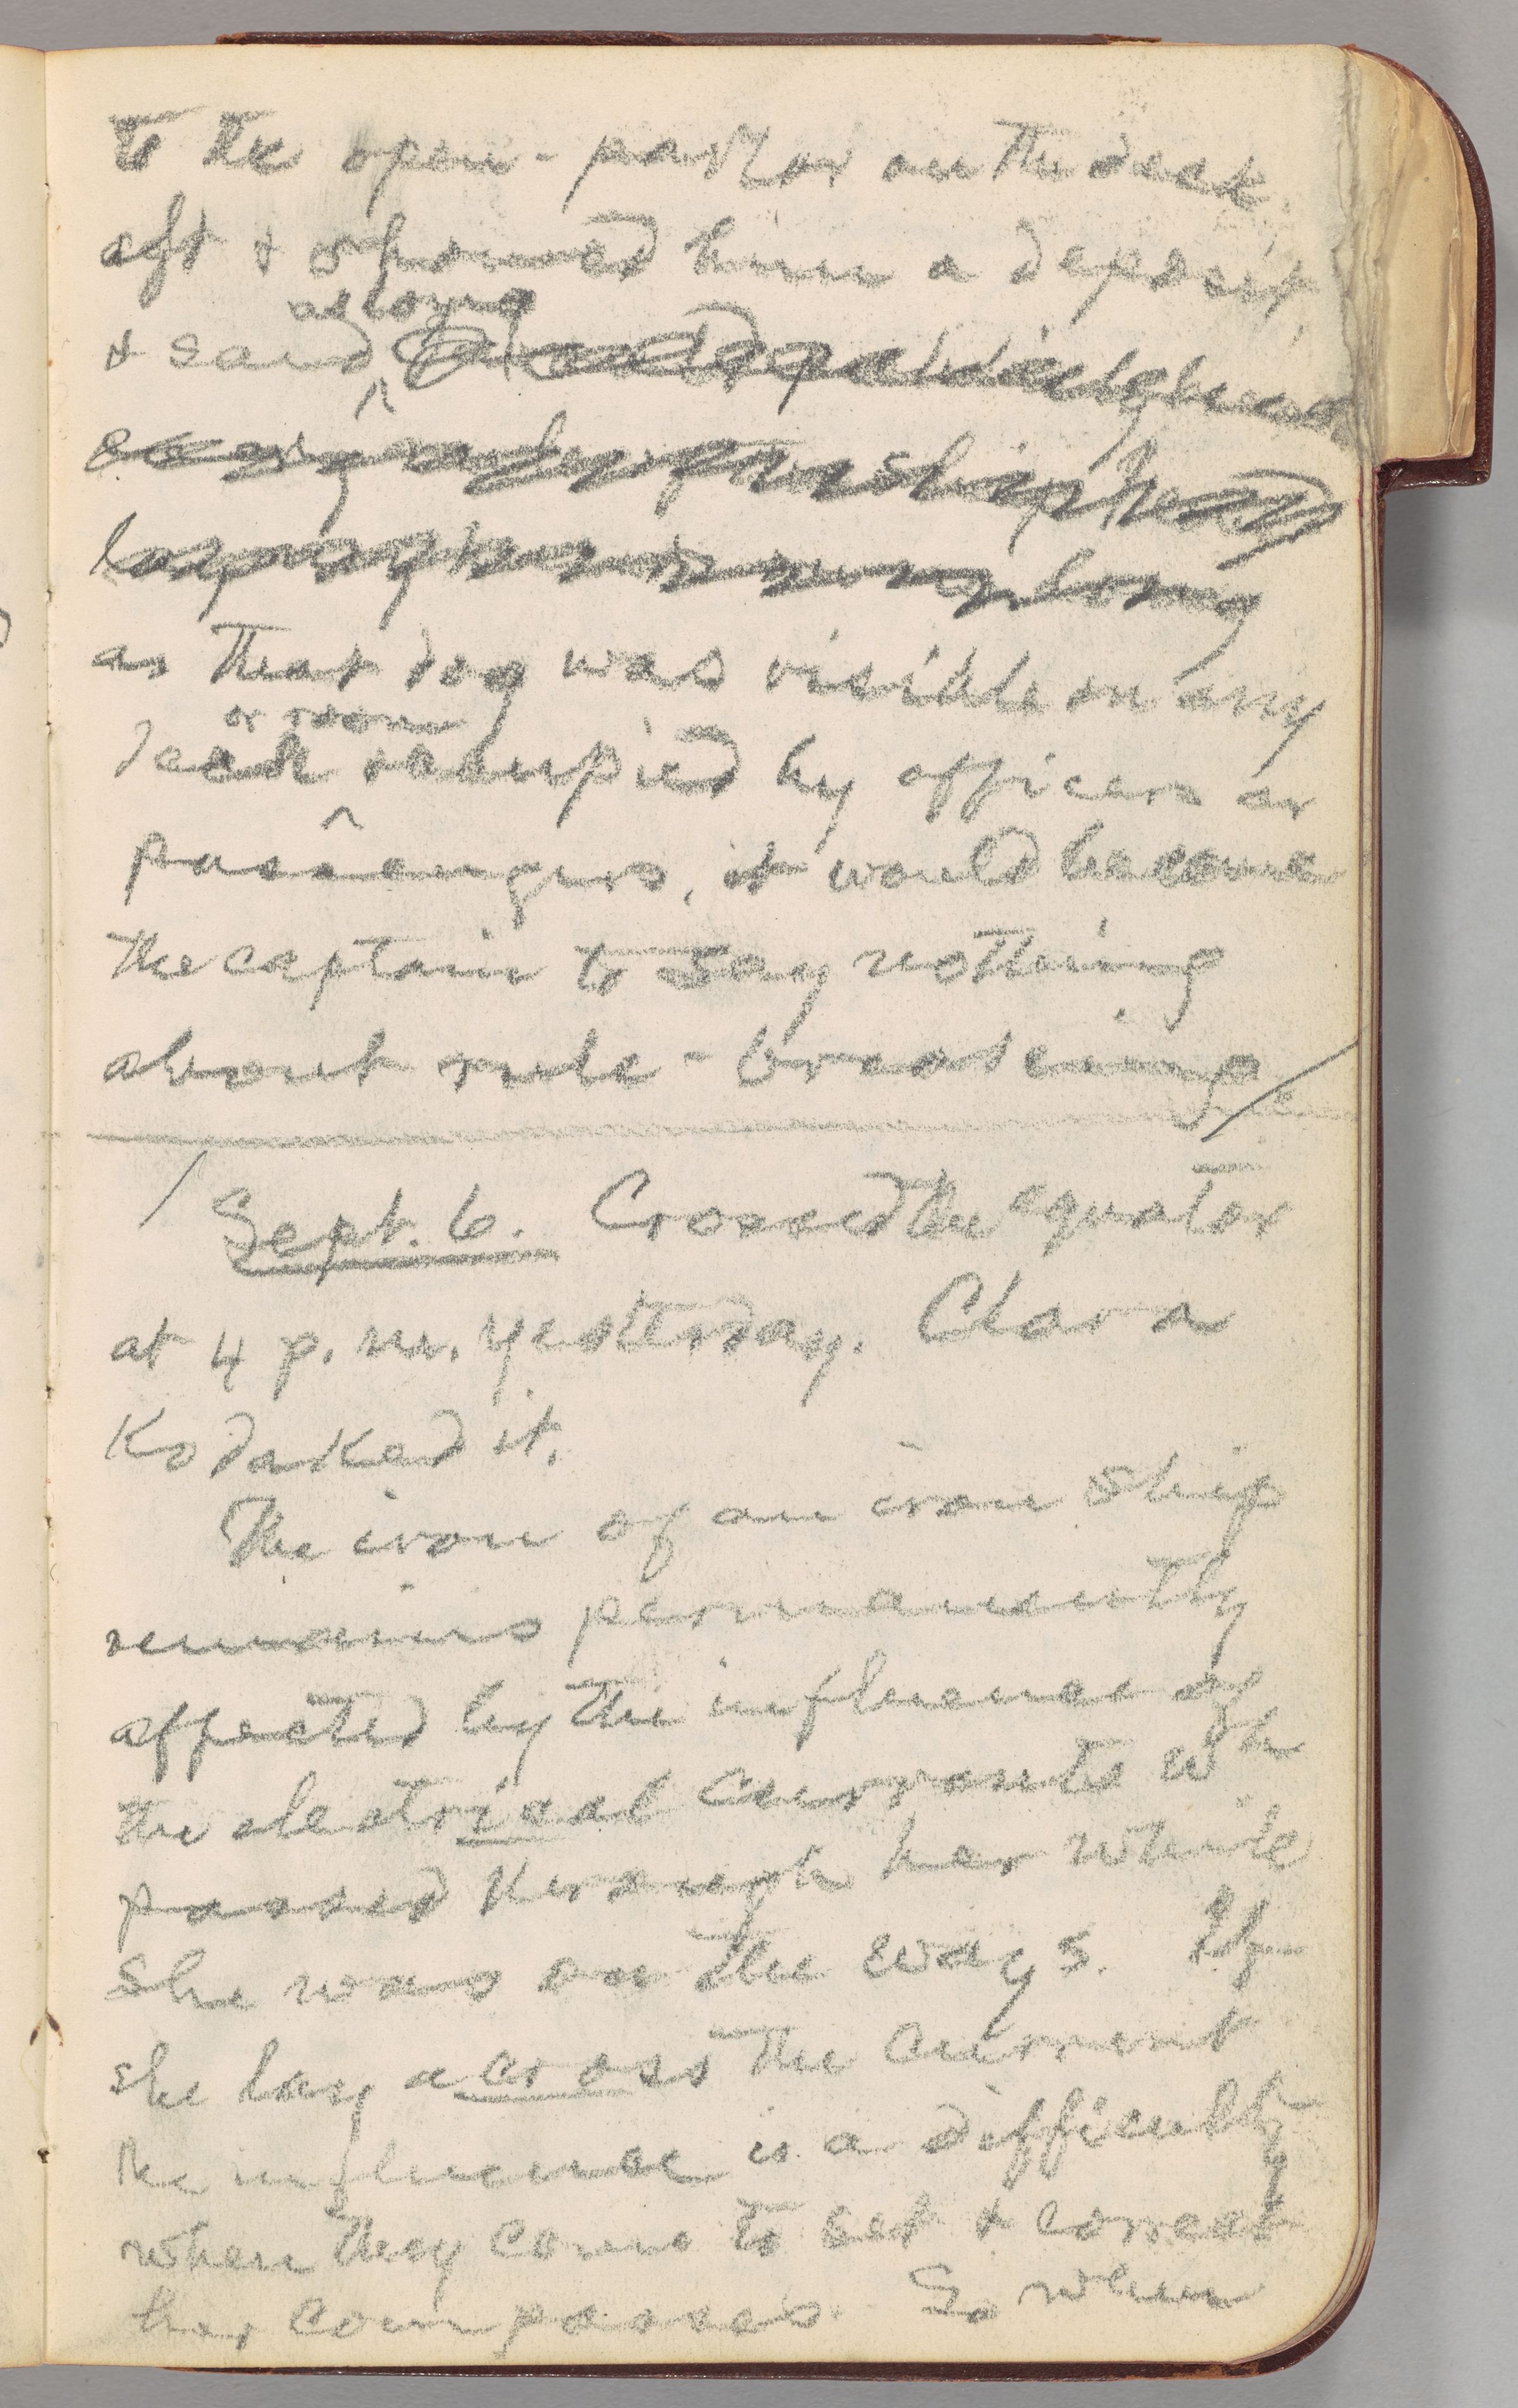 to the open-parlor on the deck
aft & showed him a deposit,
& said as long
as that dog was visible on any
deck or room occupied by officers or
passengers, it would become
the captain to say nothing
about rule-breaking
Sept. 6. Crossed the equator
at 4 p.m. yesterday. Clara
Kodaked it.
The iron of an iron ship
remains permanently
affected by the influence of
the electrical currents wh
passed through her while
she was on the ways. If
she lay across the current
the influence is a difficulty
when they come to set & correct
her compasses. So when